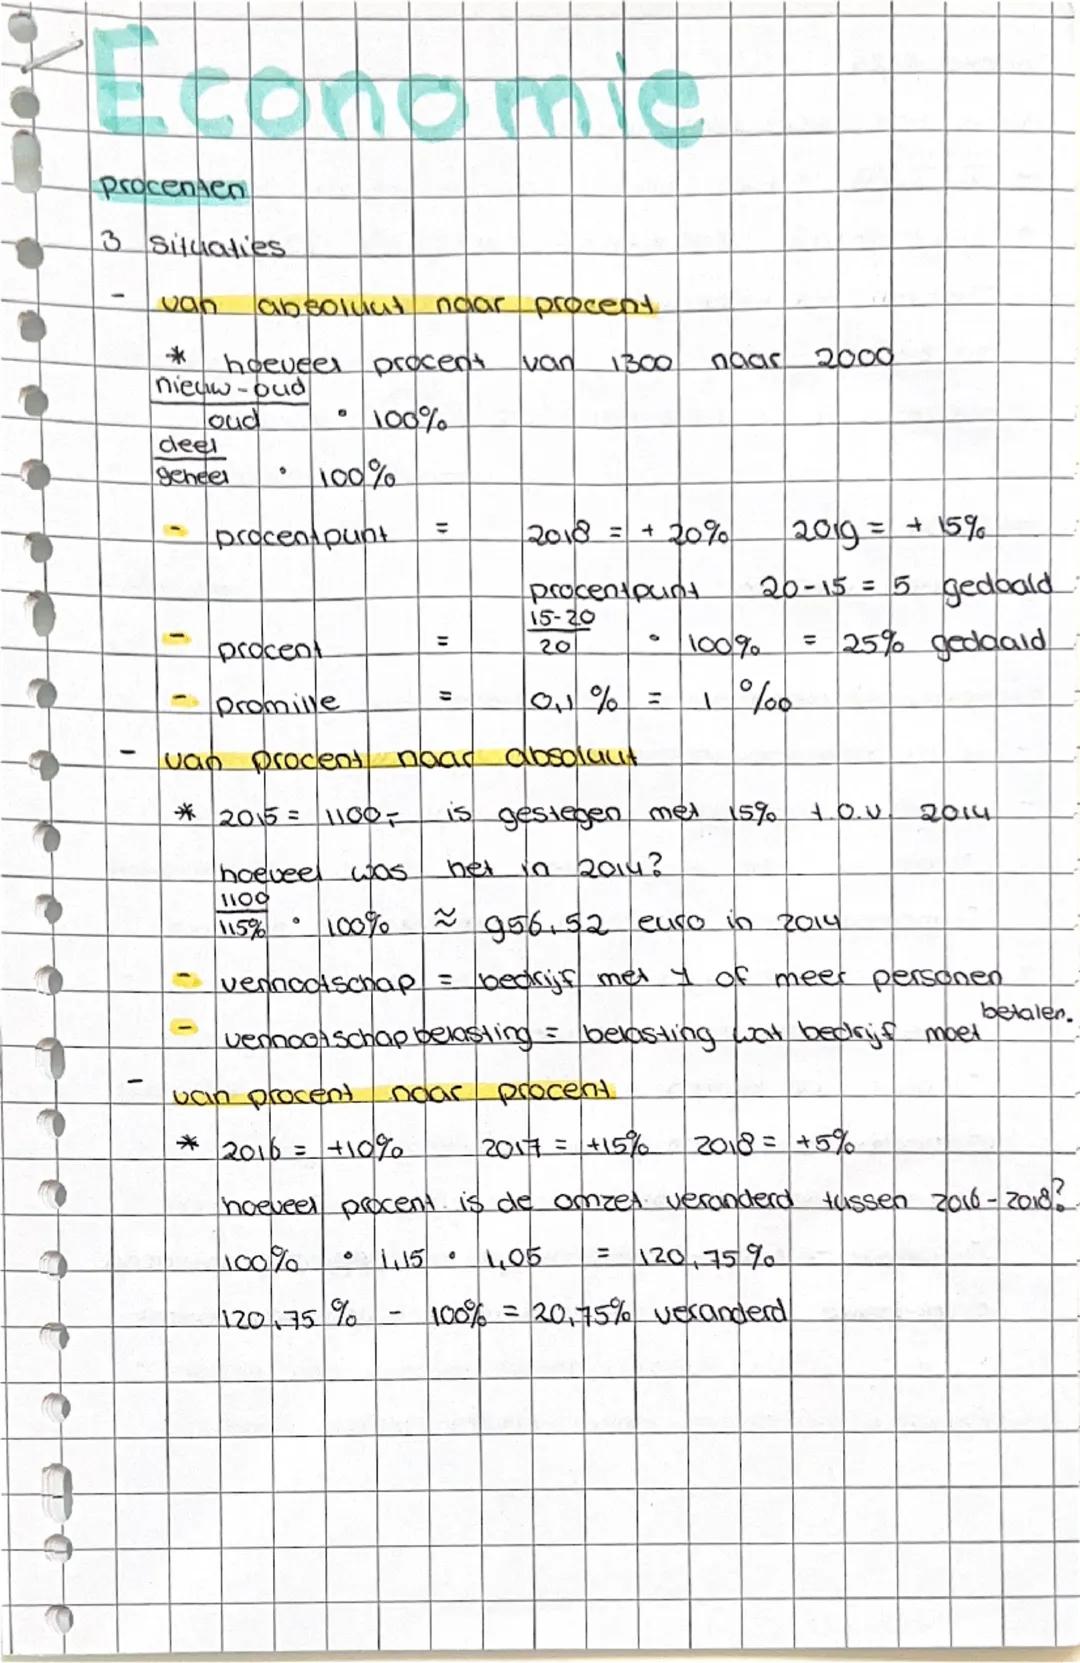 Economie
procenten
3 situaties
- van absoluut naar procent
* hoeveel procent van 1300 naar 2000
nieuw-oud
oud • 100%
deel
geheel • 100%
- procentpunt = 2018 = + 20% 2019 = + 15%
procentpunt 20-15 = 5 gedaald
15-20
- procent = 20 • 100% = 25% gedaald
- promille = 0,1 % = 1 ‰
- van procent naar absoluut
* 2015 = 1100,- is gestegen met 15% t.o.v. 2014
hoeveel was het in 2014?
1100
115% • 100% ≈ 956,52 euro in 2014
- vennootschap = bedrijf met 1 of meer personen
- vennootschapbelasting = belasting wat bedrijf moet betalen.
- van procent naar procent
* 2016 = +10% 2017 = +15% 2018 = +5%
hoeveel procent is de omzet veranderd tussen 2016-2018?
100% • 1,15 • 1,05 = 120,75%
120,75 % - 100% = 20,75% veranderd